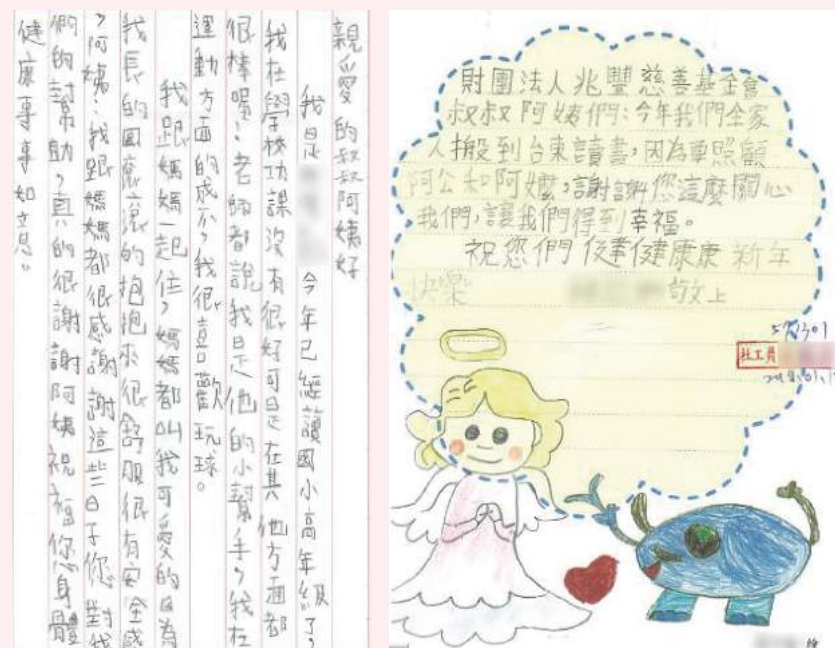 親愛的叔叔阿姨好
我是 今年已經讀國小高年級了,
我在學校功課沒有很好可是在其他方面都
很棒喔!老師都說我是他的小幫手,我在
運動方面的成分,我很喜歡玩球。
我跟媽媽一起住,媽媽都叫我可愛的因為
我長的圓滾滾的抱抱來很舒服很有安全感
,阿姨:我跟媽媽都很感謝謝這些日子您對我
們的幫助,真的很謝謝阿姨祝福您身體
健康事事如意。
財團法人兆豐慈善基金會
叔叔阿姨們:今年我們全家
人搬到台東讀書,因為要照顧
阿公和阿嬤,謝謝您這麼關心
我們,讓我們得到幸福。
祝您們 健健康康 新年
快樂 敬上
社工員